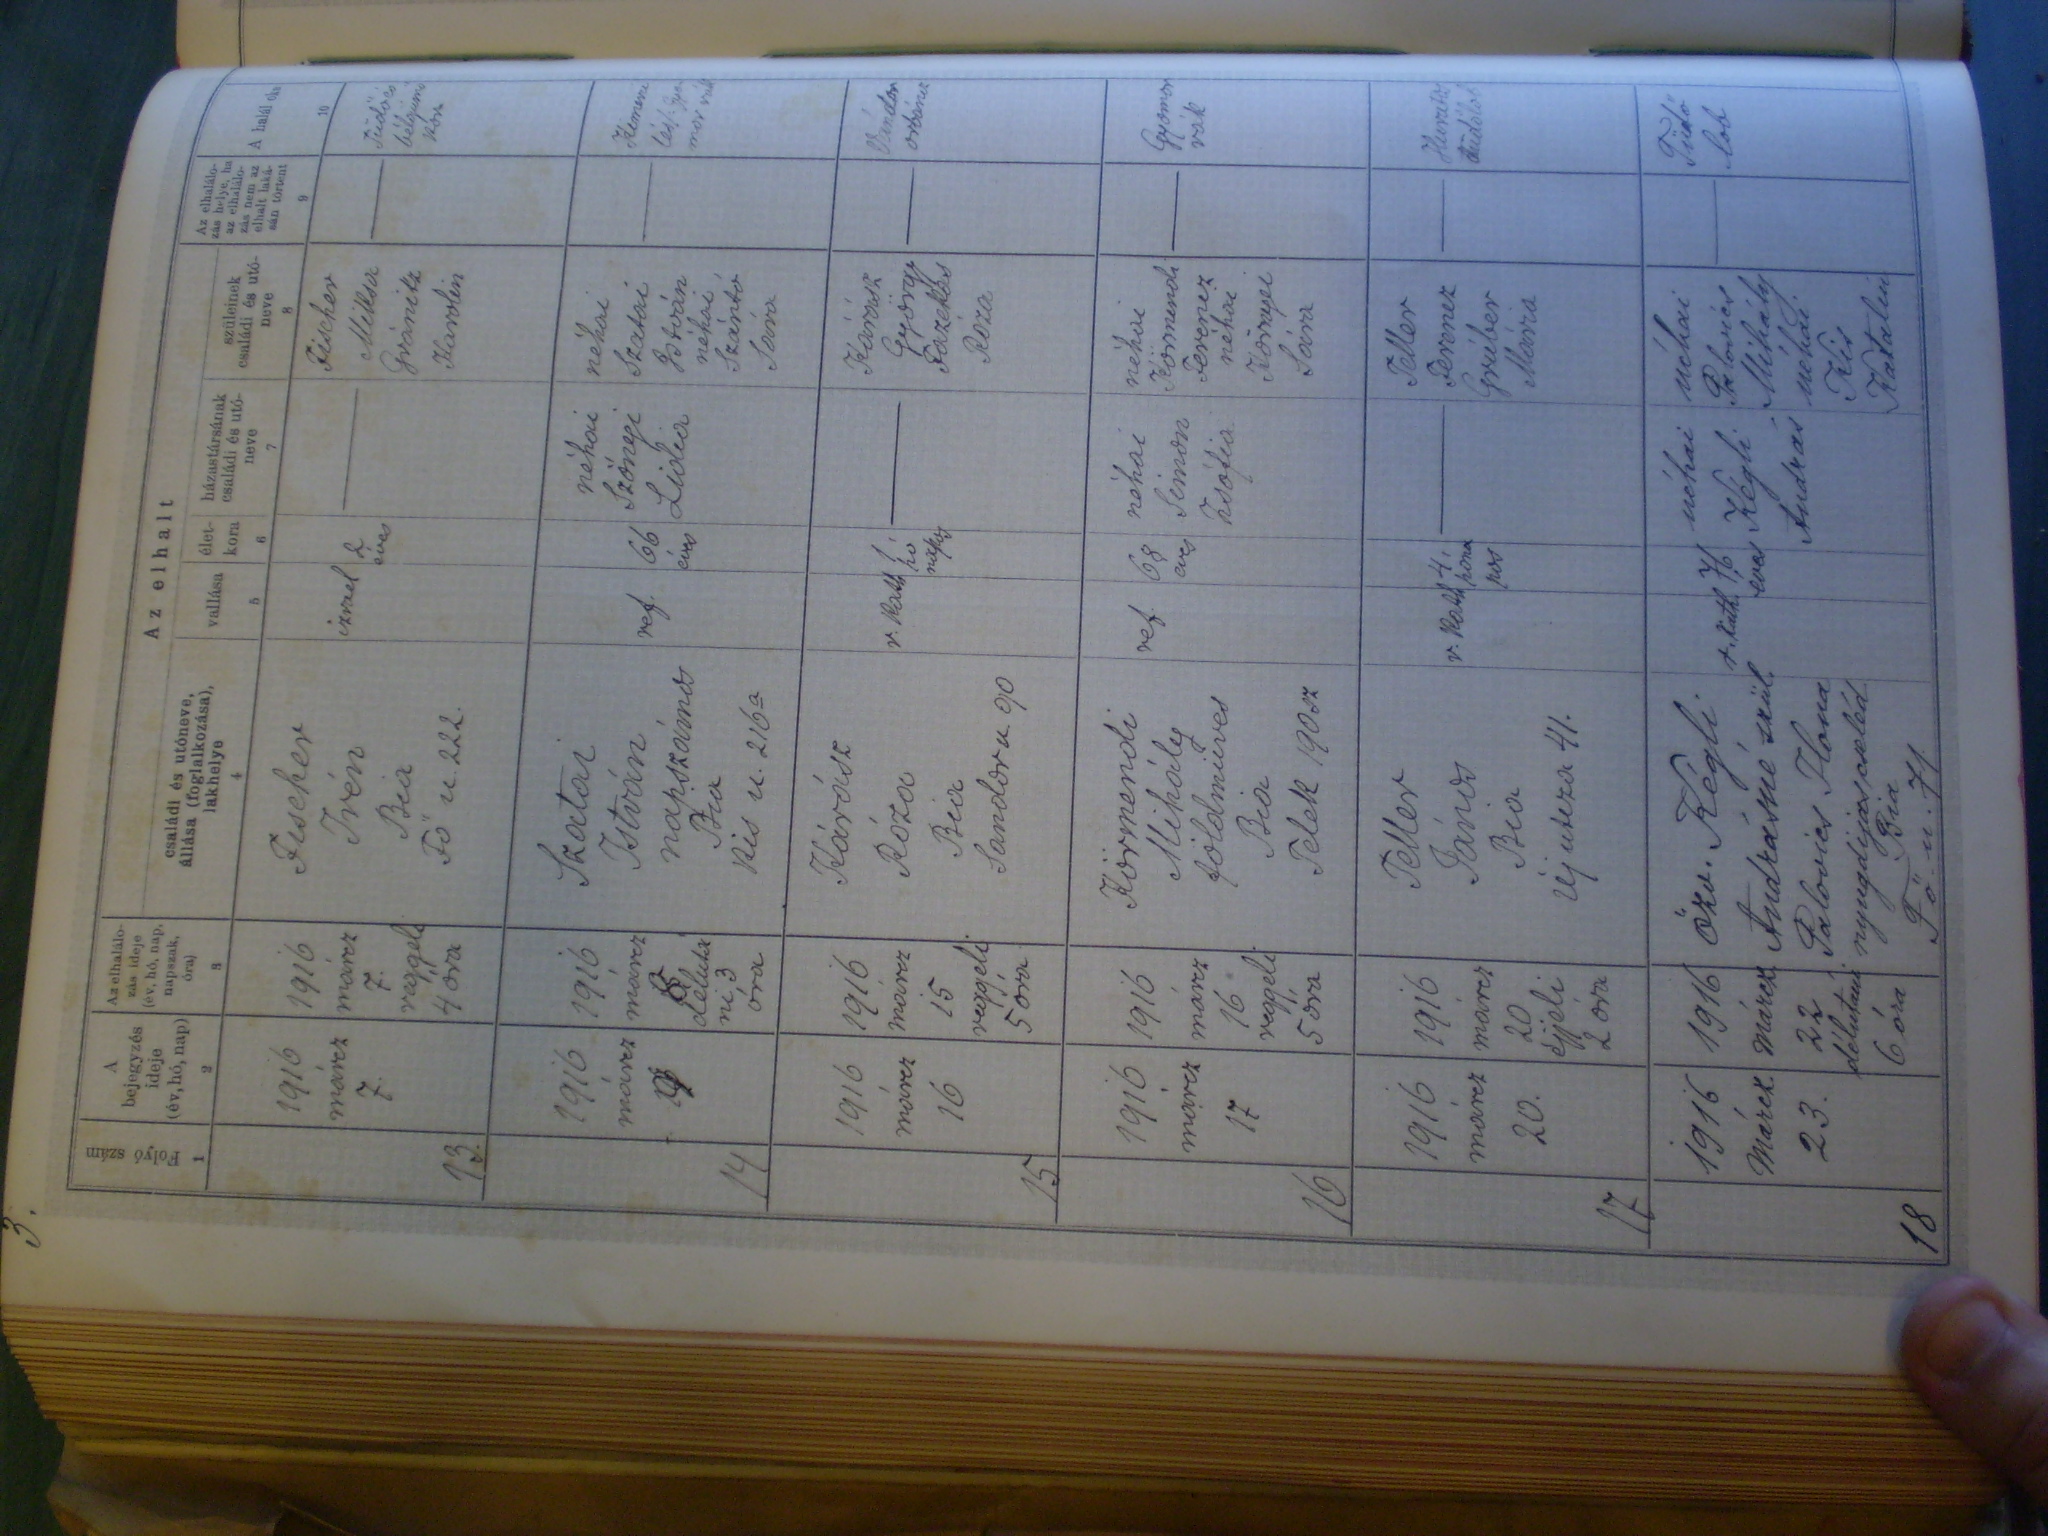 3.
Az elhalt
Folyó szám
A
bejegyzés
ideje
(év, hó, nap)
Az elhaláló-
zás ideje
(év, hó, nap,
napszak,
óra)
családi és utóneve,
állása (foglalkozása),
lakhelye
vallása
élet-
kora
házastársának
családi és utó-
neve
szüleinek
családi és utó-
neve
Az elhaláló-
zás helye, ha
az elhaláló-
zás nem az
elhalt laká-
sán történt
A halál oka
1
2
3
4
5
6
7
8
9
10
13.
1916
márcz
7.
1916
márcz
7.
reggeli
4 óra
Fischer
Irén
Bia
Fő u. 222.
izrael
2
éves
Fischer
Miksa
Gránitz
Karolin
14
1916
márcz
1916
márcz
8
délutá
ni 3
óra
Szatai
István
napszámos
Bia
Kis u. 216a
ref.
66
éves
néhai
Szőnyi
Lidia
néhai
Szatai
István
néhai
Szántó
Sára
15
1916
márcz
16
1916
márcz
15
reggeli
5 óra
Kárász
Róza
Bia
Sandor u 90
r. kath
1
hó
napos
Kárász
György
Fazekas
Róza
16
1916
márcz
17
1916
márcz
16
reggeli
5 óra
Körmendi
Mihály
földmíves
Bia
Telek 190 sz
ref.
68
éves
néhai
Simon
Zsófia
néhai
Körmendi
Ferencz
néhai
Sára
Gyomor
rák
17
1916
márcz
20.
1916
márcz
20
éjjeli
2 óra
Teller
János
Bia
Uj utcza 41.
r. kath
4.
hóna
pos
Teller
Ferencz
Gréber
Mária
18
1916
Márcz
23.
1916
Márcz
22
délutáni
6 óra
Özv. Kégli
Andrásné szül.
Palovics Ilona
nyugdijascseléd
Bia
Fő-u. 71.
r. kath.
76
éves
néhai
Kégli
András
néhai
Palovics
Mihály
néhai
Kis
Katalin
Tüdő
lob